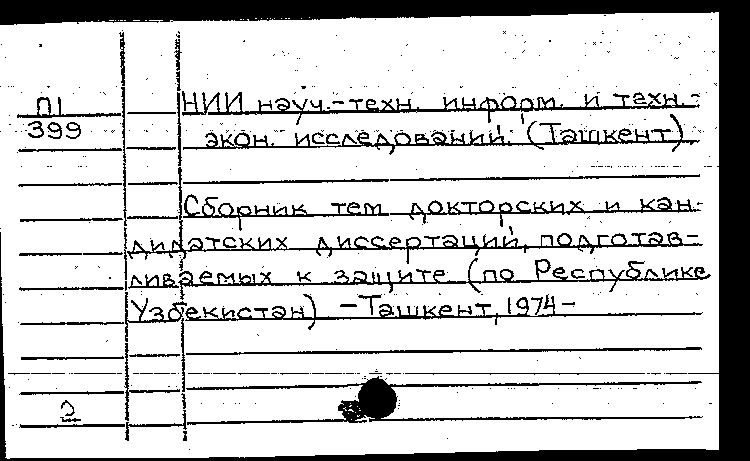 П1
399
НИИ науч.-техн. информ. и техн.-
экон. исследований. (Ташкент).
Сборник тем докторских и кан-
дидатских диссертаций, подготав-
ливаемых к защите (по Республике
Узбекистан) - Ташкент, 1974-
2